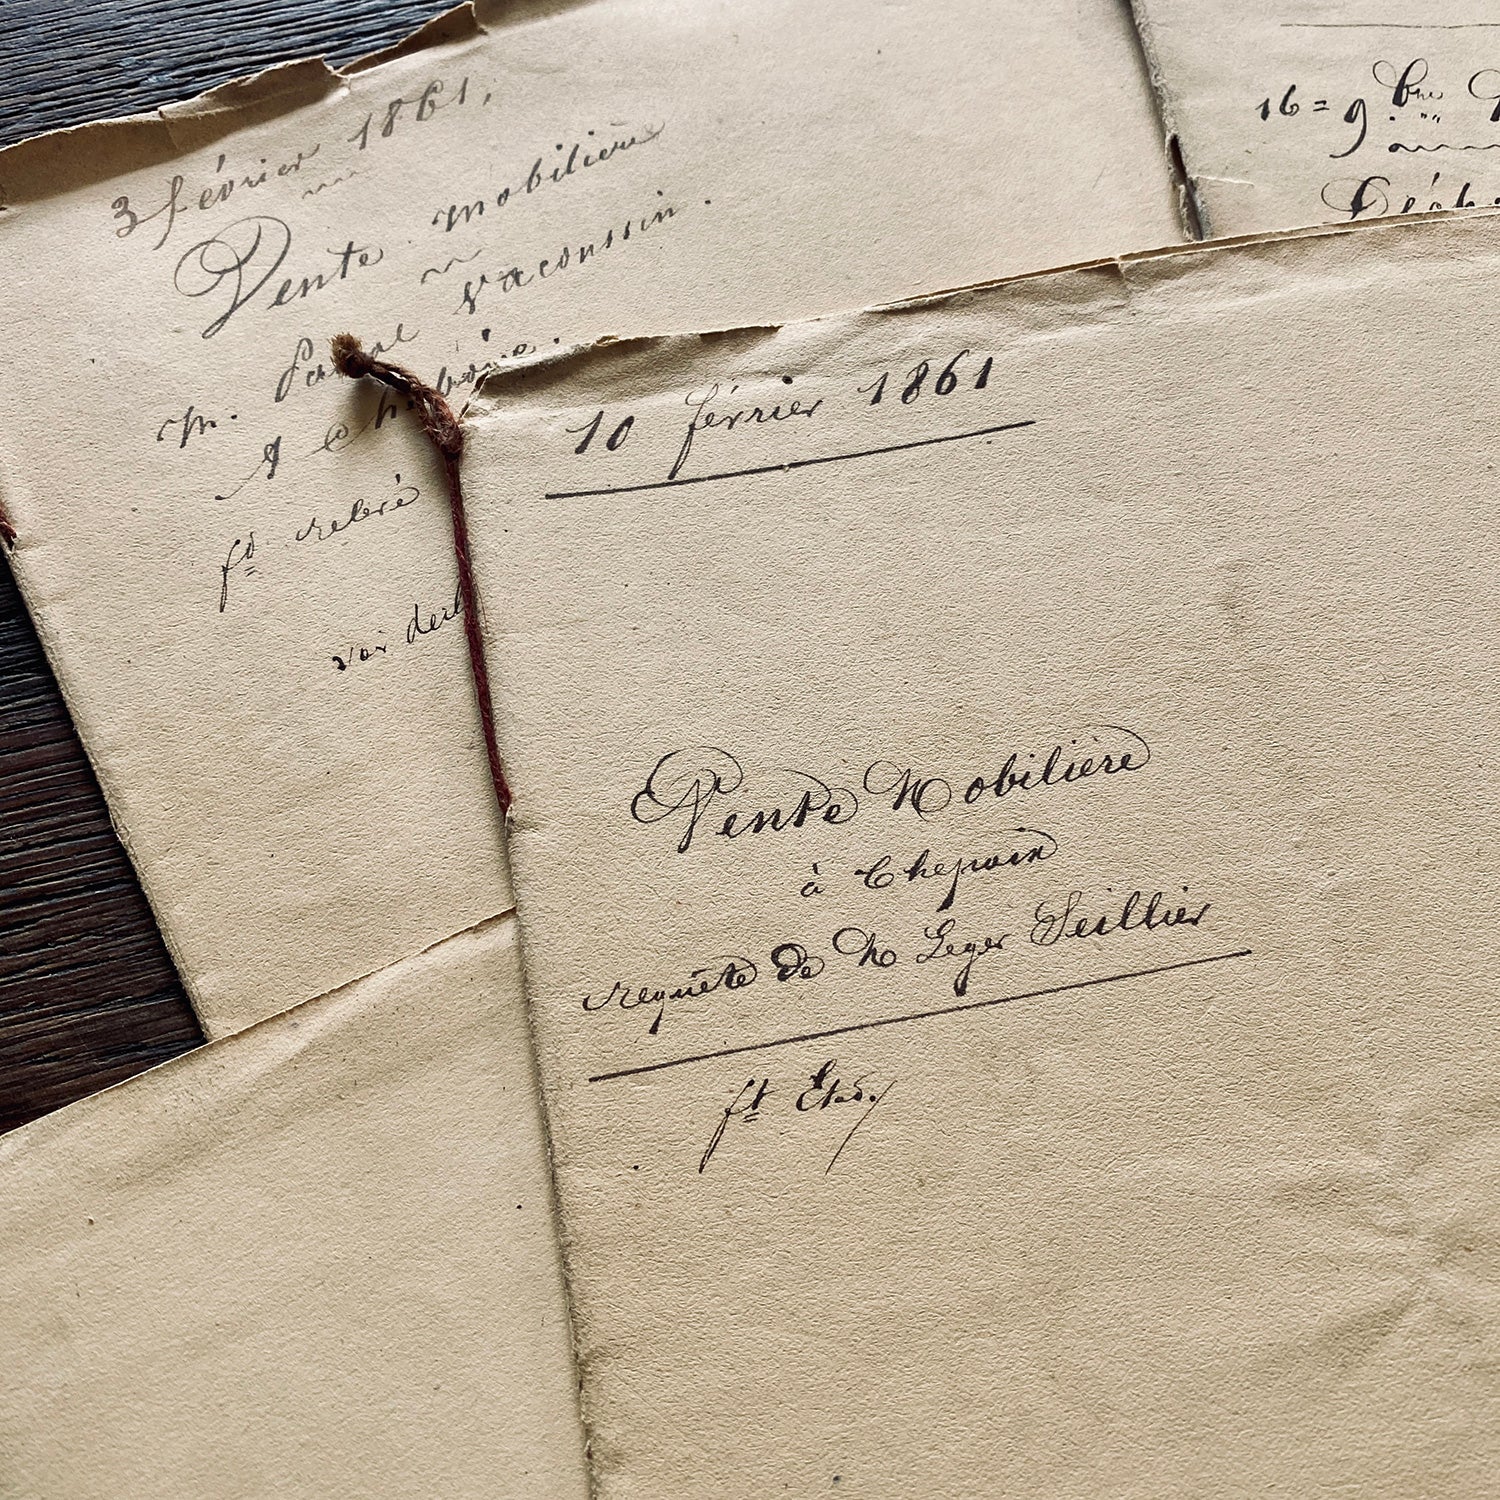 3 février 1861,
Vente mobilière
M. Vacoussin.
A
voir
16 = 9bre
10 février 1861
Vente Mobilière
à Chepoix
requête de M Leger Seillier
ft Etat.